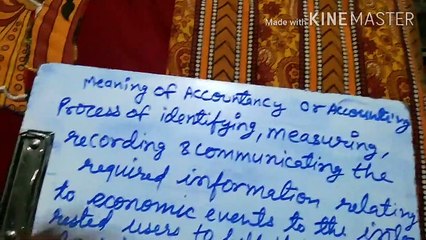 Made with KINEMASTER
Meaning of Accountancy or Accounting
Process of identifying, measuring,
recording & communicating the
required information relating
to economic events to the inte
rested users to